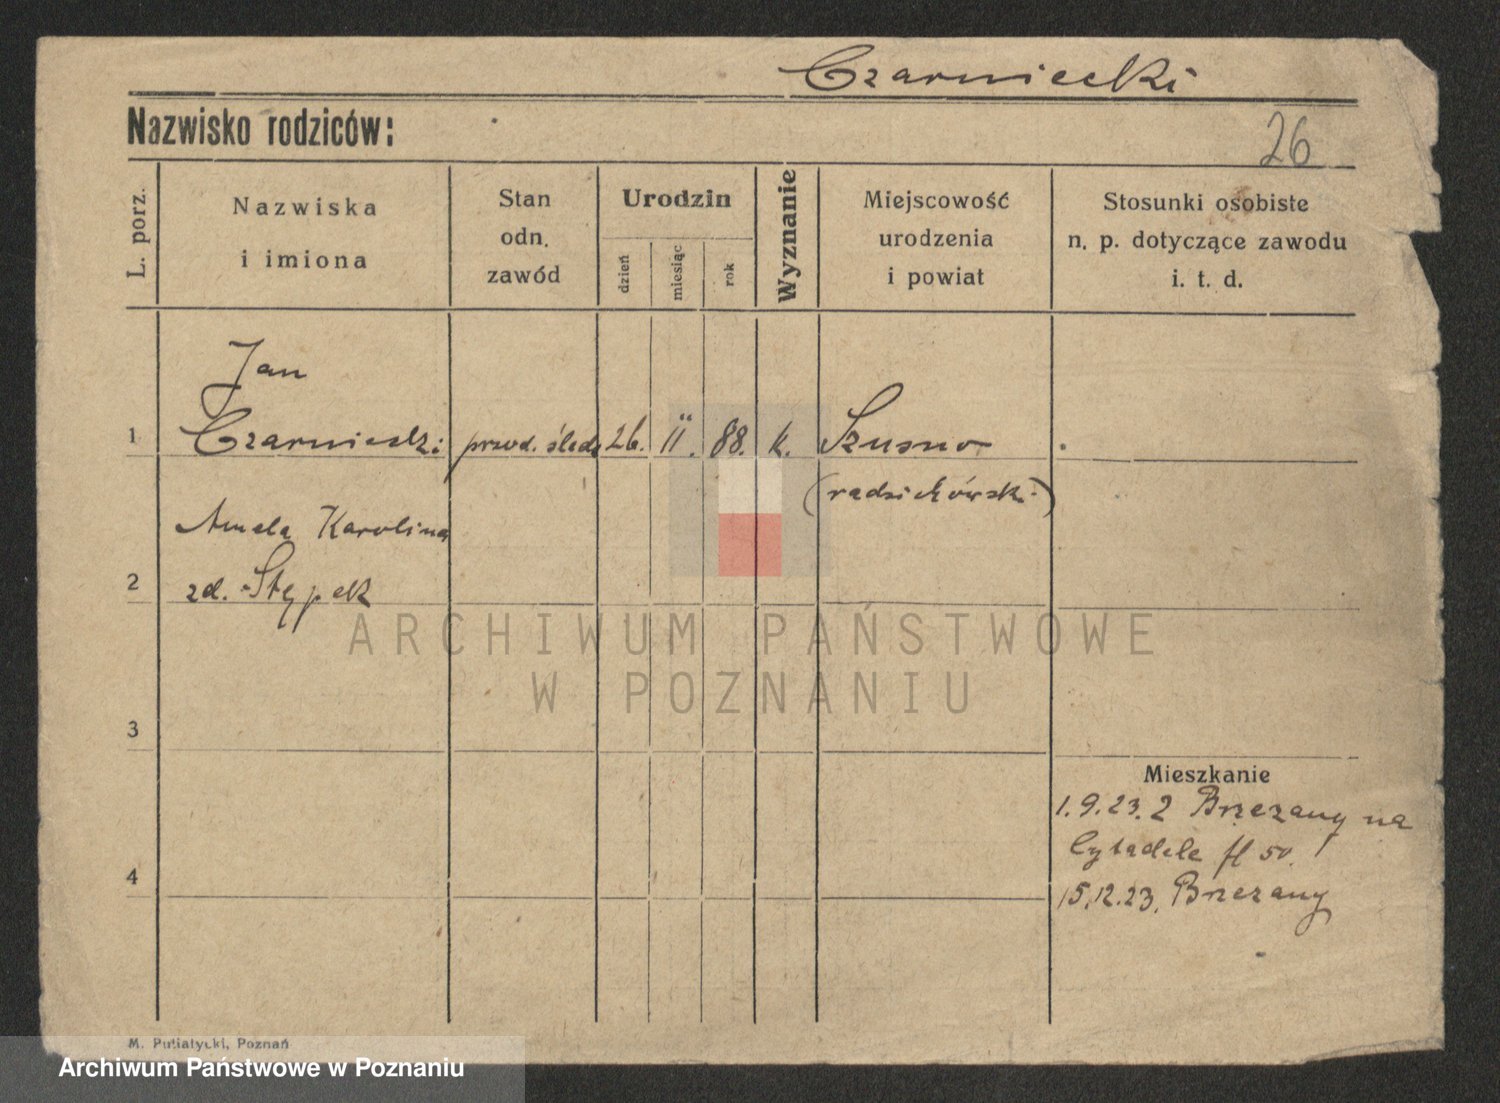 Czarniecki
Nazwisko rodziców:
26
L. porz.
Nazwiska
i imiona
Stan
odn.
zawód
Urodzin
dzień
miesiąc
rok
Wyznanie
Miejscowość
urodzenia
i powiat
Stosunki osobiste
n. p. dotyczące zawodu
i. t. d.
Jan
1 Czarniecki 26. II. 88. k. Szusno
(radziechowski)
Amela Karolina
2 zd. Stępek
ARCHIWUM PAŃSTWOWE
W POZNANIU
3
Mieszkanie
1.9.23. z Brzezany na
Cytadele fl 50.
4
15.12.23. Brzezany
M. Putiatycki, Poznań
Archiwum Państwowe w Poznaniu